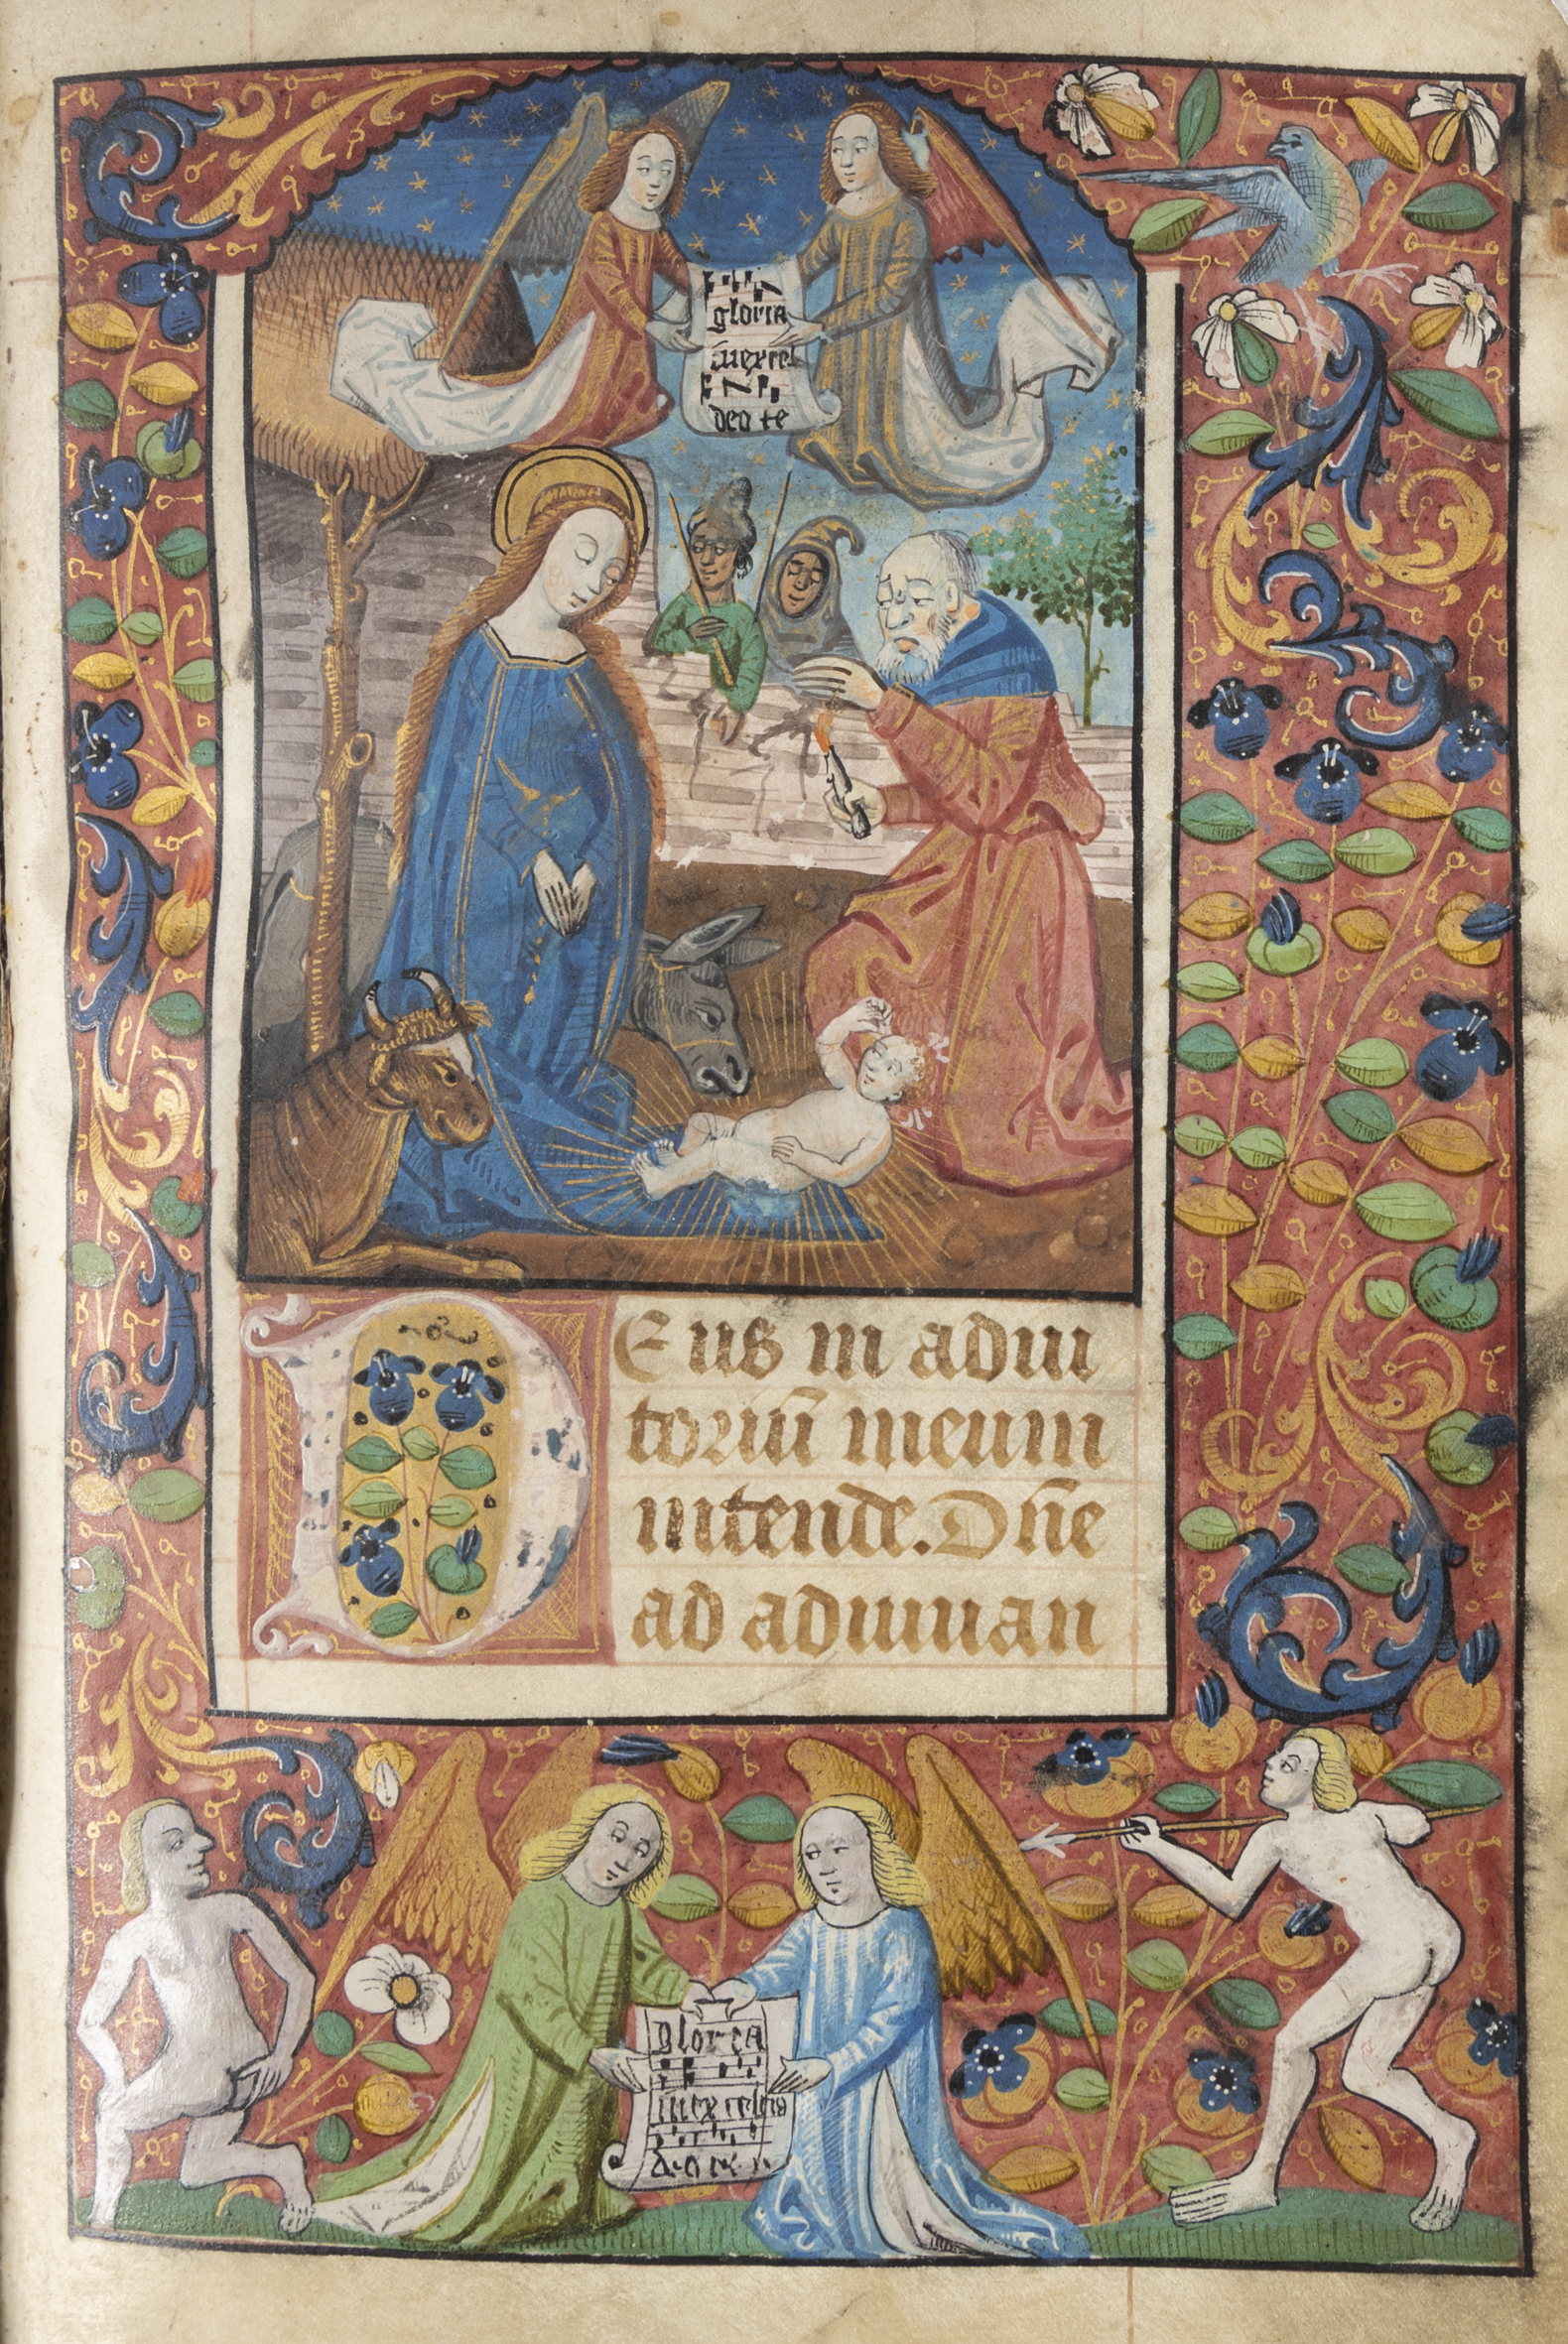 gloria
in excel
deo te
Deus in adiu
toriū meum
intende. Dn̄e
ad adiuuan
gloria
in excelcis